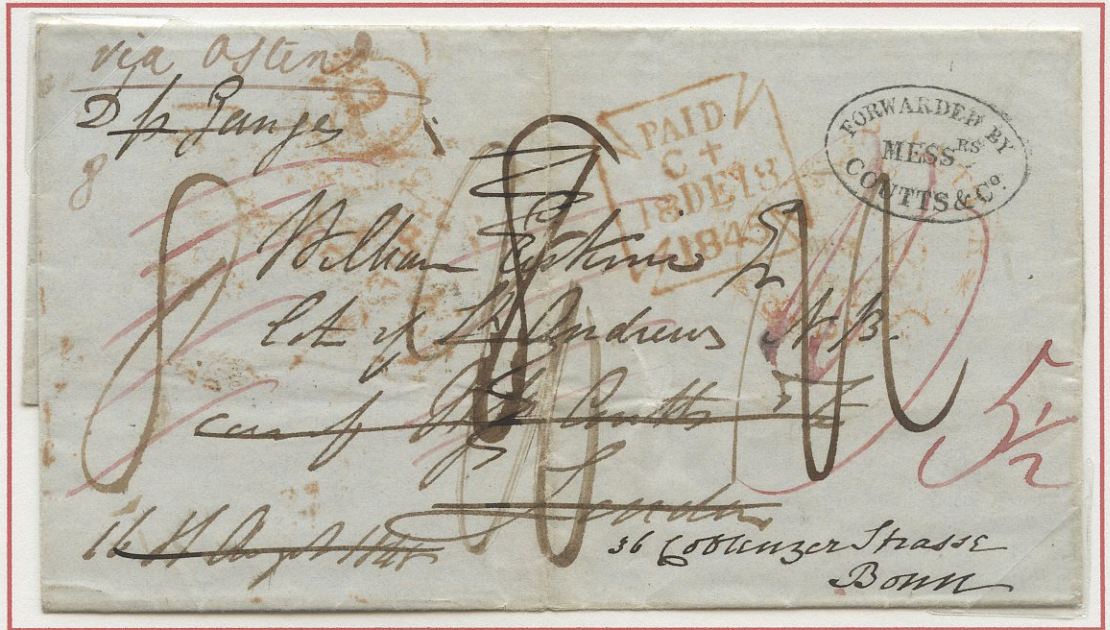 via Ostend
D p Ganges
8
PAID
C +
18 DE 18
1845
FORWARDED BY
MESSRS
COUTTS & Co
William Erskine Esqr
St Andrews N.B.
care of Messrs Coutts & Co
London
16
36 Coblenzer Strasse
Bonn
5 1/2